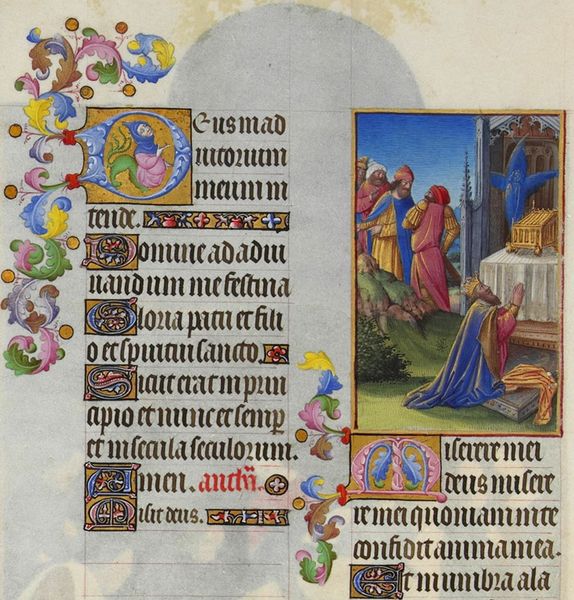 Deus in ad
iutorium
meum in
tende.
Domine ad adiu
uandum me festina
Gloria patri et fili
o et spiritui sancto.
Sicut erat in prin
cipio et nunc et semp
et in secula seculorum.
Amen. anth̄
Misit deus.
Miserere mei
deus misere
re mei quoniam in te
confidit anima mea.
Et in umbra ala